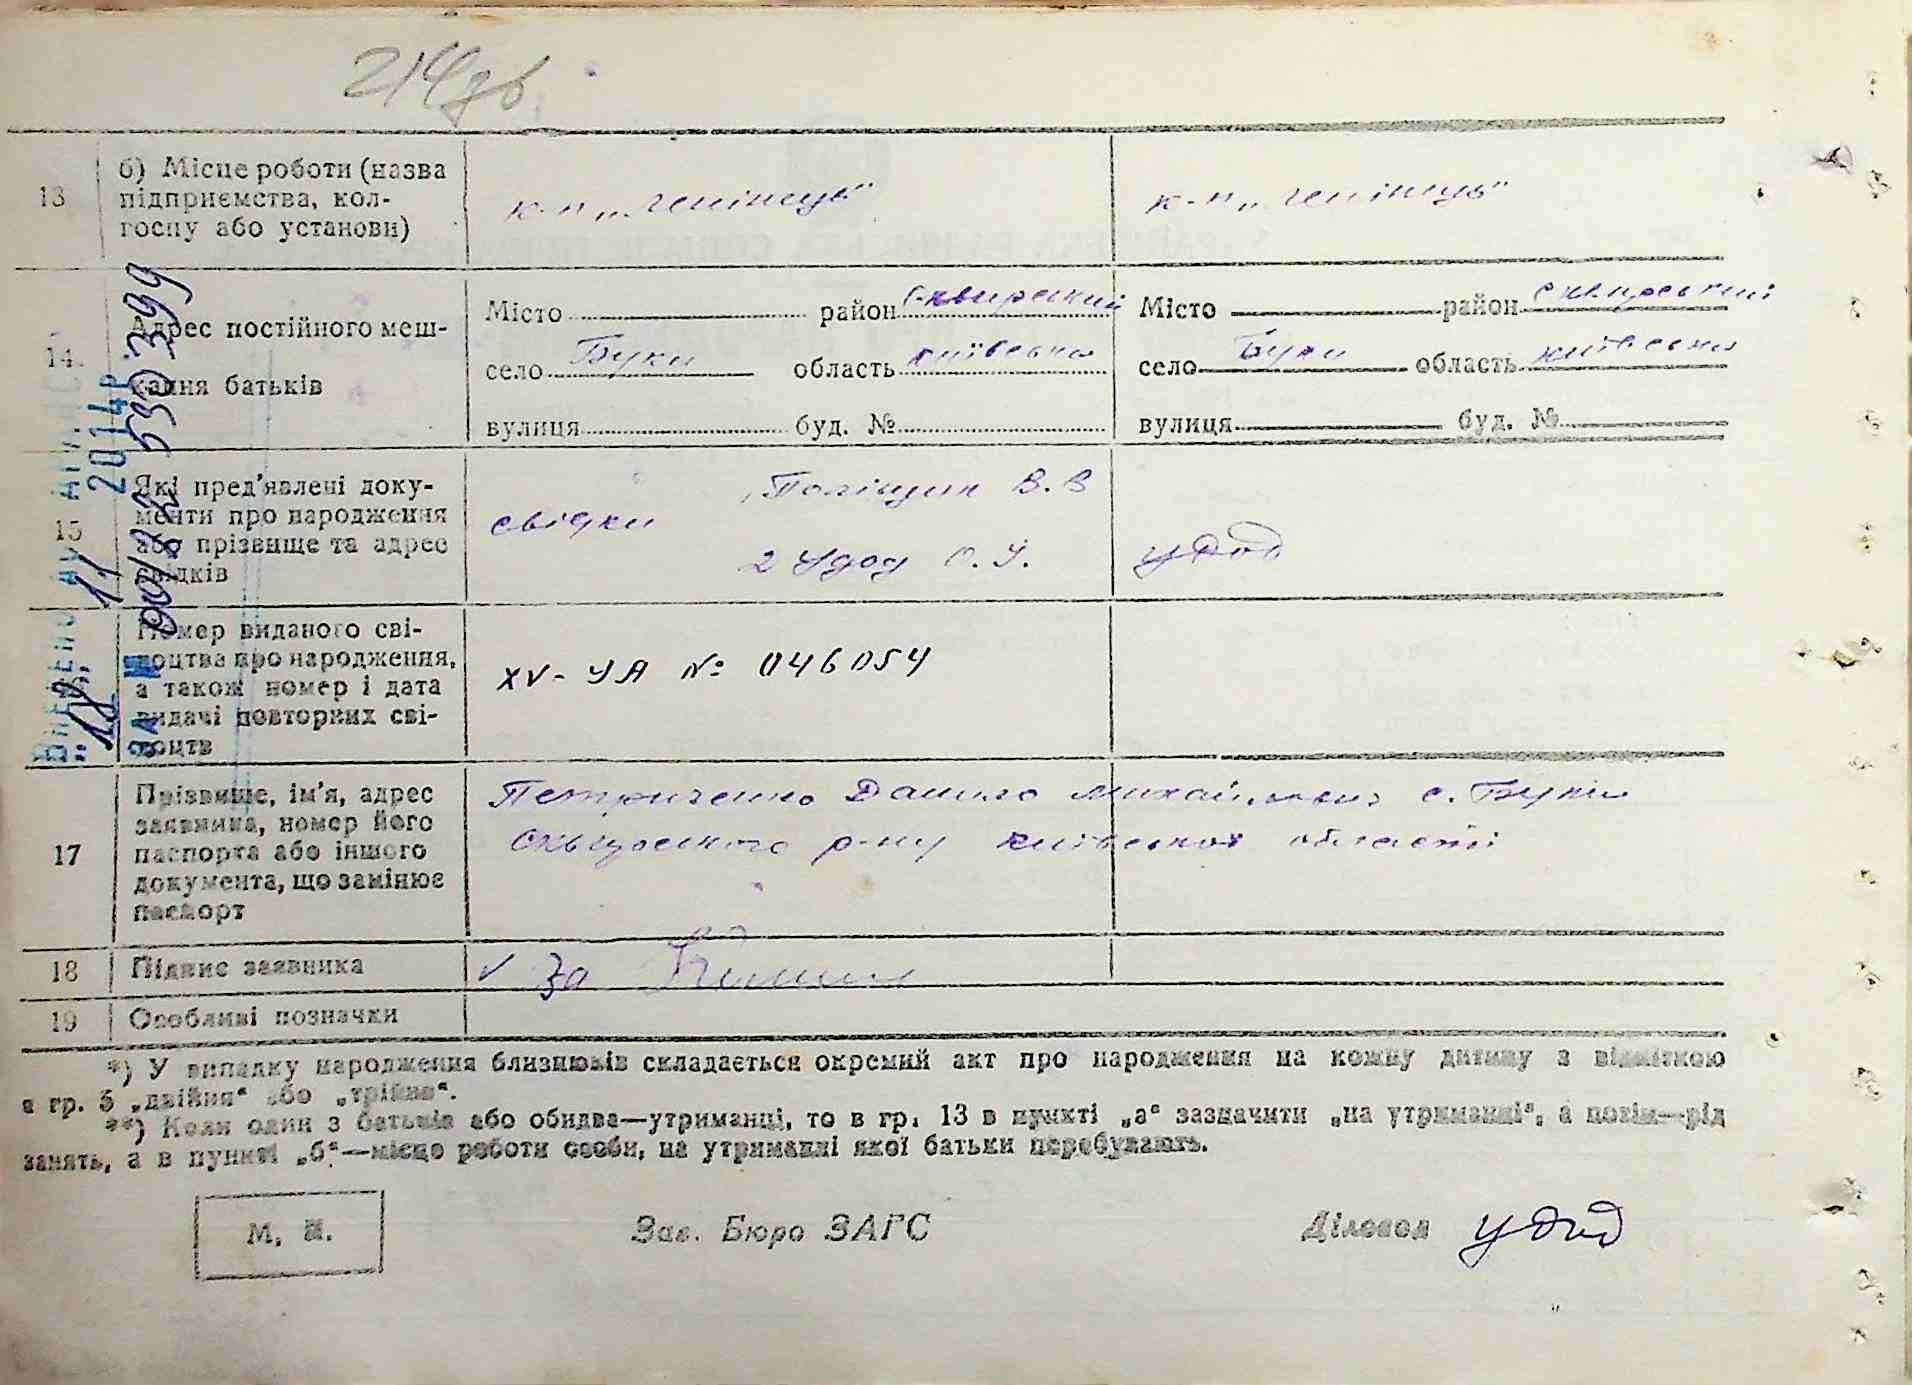 214зв
13 б) Місце роботи (назва
підприємства, кол-
госпу або установи)
к-п „Ленінець" к-п „Ленінець"
14. Адрес постійного меш-
кання батьків
Місто район Сквирський Місто район Сквирський
село Буки область київська село Буки область київська
вулиця буд. № вулиця буд. №
15 Які пред'явлені доку-
менти про народження
або прізвище та адрес
свідків
свідки Поліщук В. В
2 Удод О. У. Удод
Номер виданого сві-
доцтва про народження,
а також номер і дата
видачі повторних сві-
доцтв
XV-УА № 046054
17 Прізвище, ім'я, адрес
заявника, номер його
паспорта або іншого
документа, що замінює
паспорт
Петриченко Данило Михайлович с. Буки
Сквирського р-ну київської області
18 Підпис заявника
V За
19 Особливі позначки
*) У випадку народження близнюків складається окремий акт про народження на кожну дитину з відміткою
в гр. 5 „двійня“ або „трійня“.
**) Коли один з батьків або обидва—утриманці, то в гр. 13 в пункті „а“ зазначити „на утриманні“, а потім—рід
занять, а в пункті „б“—місце роботи особи, на утриманні якої батьки перебувають.
М. П.
Зав. Бюро ЗАГС
Діловод Удод
18 11 2014р
ЗА № 00142 530399